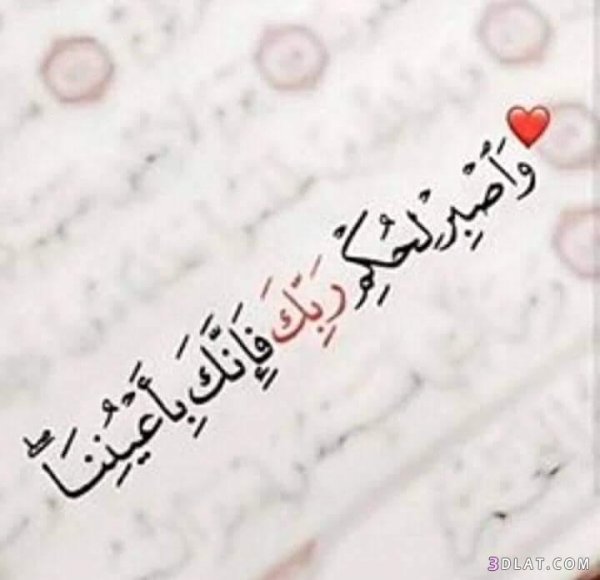 وَٱصْبِرْ لِحُكْمِ رَبِّكَ فَإِنَّكَ بِأَعْيُنِنَا ۖ
3DLAT.COM